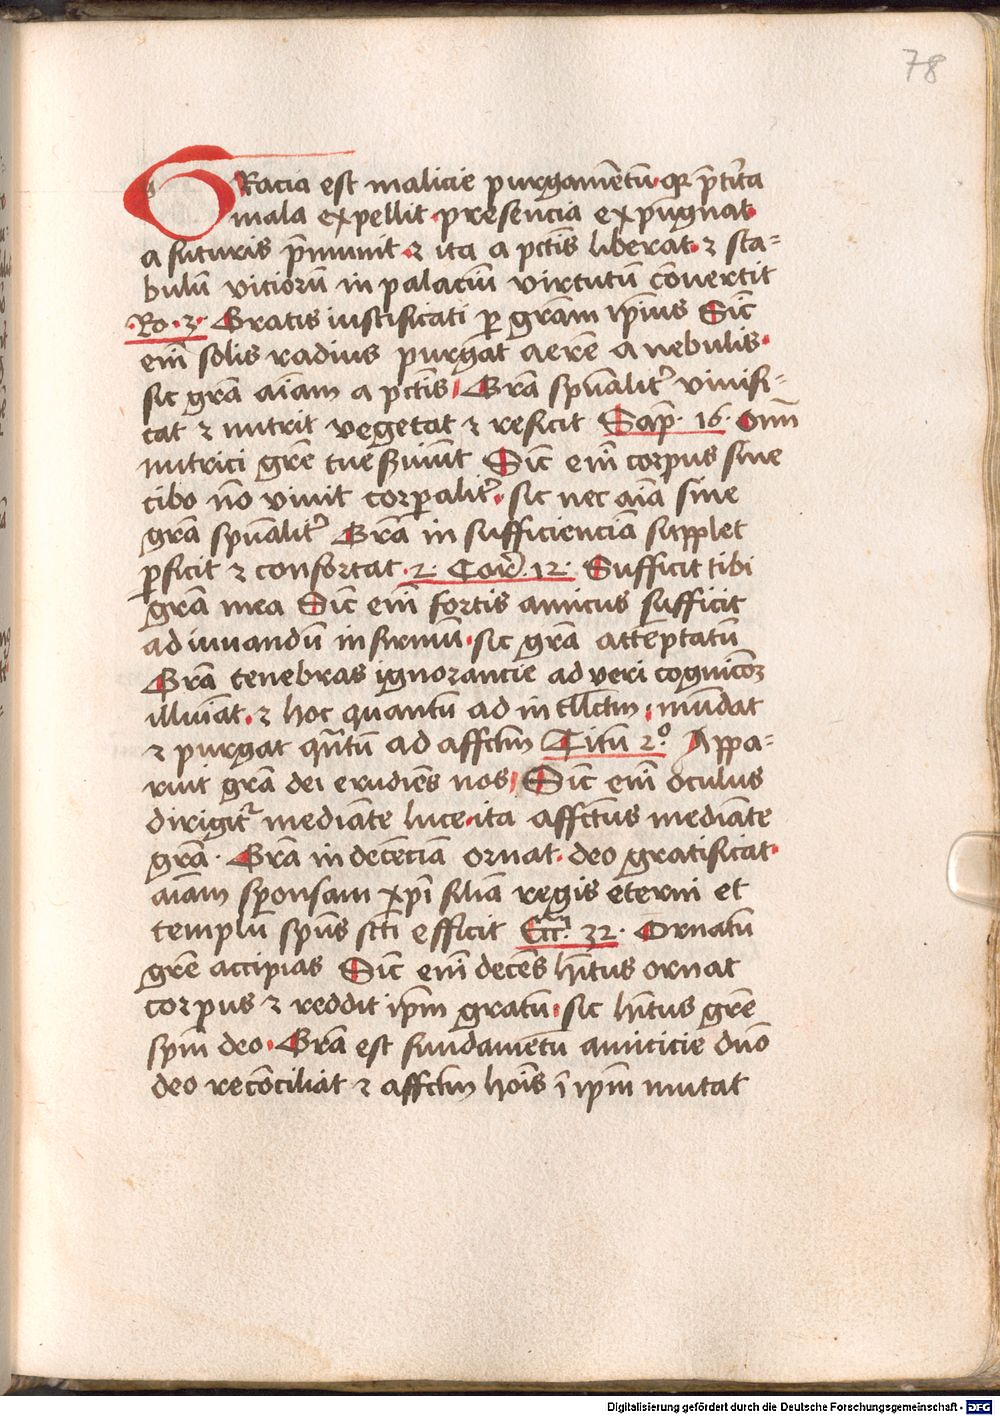 78
GRacia est malicie purgamētū qr p̄tīta
mala expellit presencia expūgnat
a futuris p̄munit ⁊ ita a pctīs liberat ⁊ sta=
bulū viciorū in palaciū virtutū cōvertit
Ro. 3. Gratis iustificati ꝑ grām ip̄ius Sic̄
eni͞ solis radius purgat aerē a nebulis
sic grā aīam a pctīs Grā spūalit᷑ vivifi=
cat ⁊ nutrit vegetat ⁊ reficit Sap. 16. Om̄
nutrici grē tue Sic̄ eni͞ corpus sine
cibo nō vivit corꝑalit᷑ sic nec aīa sine
grā spūalit᷑ Grā in sufficienciā supplet
ꝑficit ⁊ confortat 2. Cor̄. 12. Sufficit tibi
grā mea Sic̄ eni͞ fortis amicus sufficit
ad iuvandū infirmū sic grā attēptatū
Grā tenebras ignorancie ad veri cognicōꝫ
illuīat ⁊ hoc quantū ad intllctm mūdat
⁊ purgat qntū ad affctm Titū 2º Appa=
ruit grā dei erudiēs nos Sic̄ eni͞ oculus
dirigit᷑ mediāte luce ita affctus mediāte
grā. Grā indecēciā ornat deo gratificat
aīam sponsam xp̄i filiā regis eterni et
templū spūs scti efficit Ecc̄i. 32. Ornatū
grē accipias Sic̄ eni͞ decēs hītus ornat
corpus ⁊ reddit ip̄m gratū sic hītus grē
sp̄m deo Grā est fundamētū amicicie dnō
deo recōciliat ⁊ affctm hoīs ī ip̄m mutat
Digitalisierung gefördert durch die Deutsche Forschungsgemeinschaft - DFG